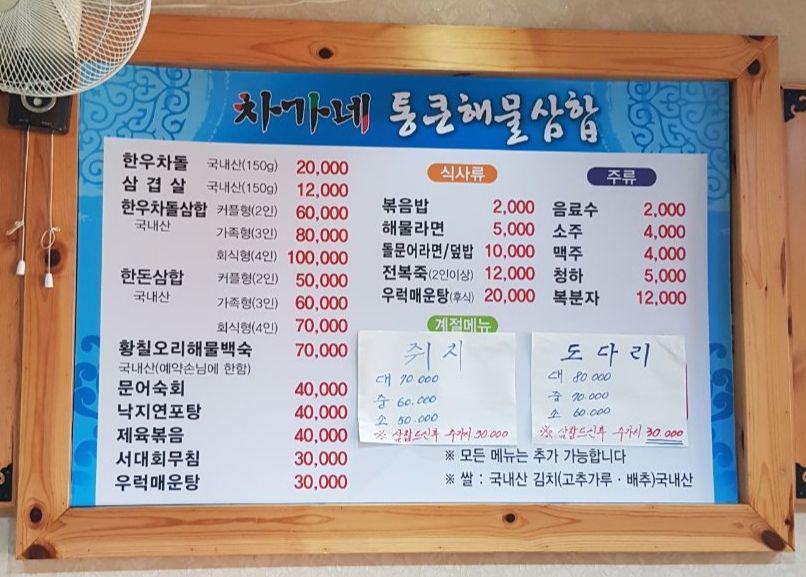 차가네 통큰해물삼합
한우차돌 국내산(150g) 20,000
삼겹살 국내산(150g) 12,000
한우차돌삼합 커플형(2인) 60,000
국내산 가족형(3인) 80,000
회식형(4인) 100,000
한돈삼합 커플형(2인) 50,000
국내산 가족형(3인) 60,000
회식형(4인) 70,000
황칠오리해물백숙 70,000
국내산(예약손님에 한함)
문어숙회 40,000
낙지연포탕 40,000
제육볶음 40,000
서대회무침 30,000
우럭매운탕 30,000
식사류
볶음밥 2,000
해물라면 5,000
돌문어라면/덮밥 10,000
전복죽(2인이상) 12,000
우럭매운탕(후식) 20,000
주류
음료수 2,000
소주 4,000
맥주 4,000
청하 5,000
복분자 12,000
계절메뉴
쥐치
대 70.000
중 60.000
소 50.000
※ 삼합드신후 추가시 30.000
도다리
대 80.000
중 70.000
소 60.000
※ 삼합드신후 추가시 30.000
※ 모든 메뉴는 추가 가능합니다
※ 쌀 : 국내산 김치(고추가루·배추)국내산